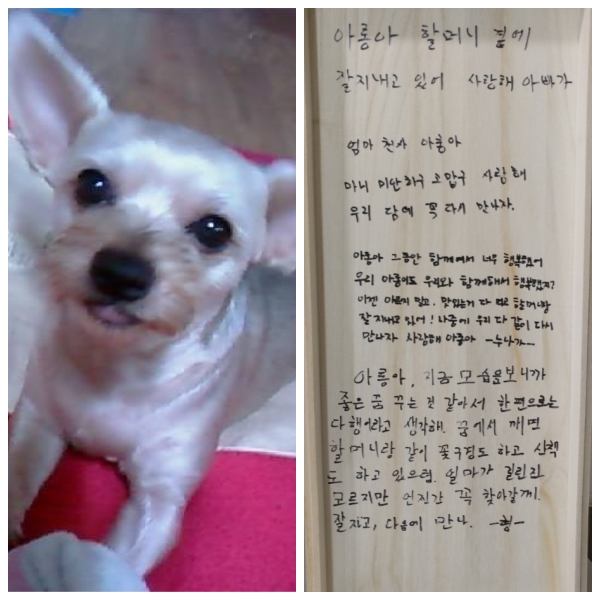 아롱아 할머니 곁에
잘지내고 있어 사랑해 아빠가
엄마 천사 아롱아
마니 미안하구 고맙구 사랑해
우리 담에 꼭 다시 만나자.
아롱아 그동안 함께해서 너무 행복했어
우리 아롱이도 우리와 함께해서 행복했지?
이젠 아프지 말고. 맛있는거 다 먹고 할머니랑
잘 지내고 있어! 나중에 우리 다 같이 다시
만나자 사랑해 아롱아 -누나가-
아롱아, 지금 모습을보니까
좋은 꿈 꾸는 것 같아서 한편으로는
다행이라고 생각해. 꿈에서 깨면
할머니랑 같이 꽃구경도 하고 산책
도 하고 있으렴. 얼마가 걸린진
모르지만 언진간 꼭 찾아갈께.
잘자고, 다음에 만나. -형-